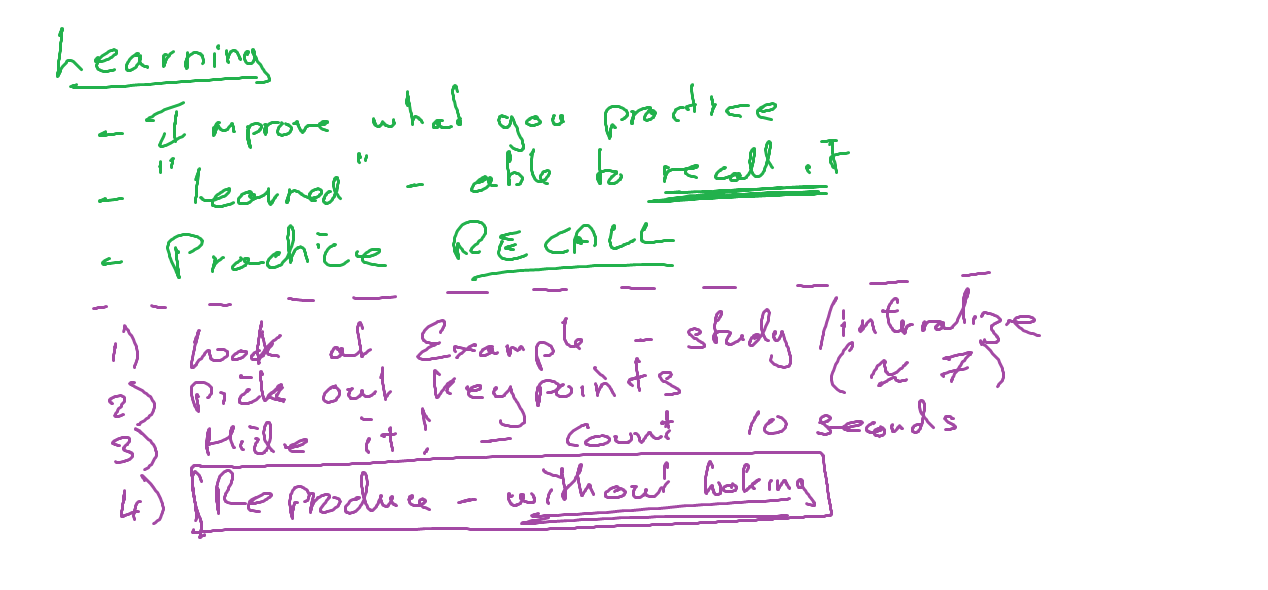 Learning
- Improve what you practice
- "Learned" - able to recall it
- Practice RECALL
1) Look at Example - study /internalize
2) Pick out key points (≈ 7)
3) Hide it! - count 10 seconds
4) Reproduce - without looking